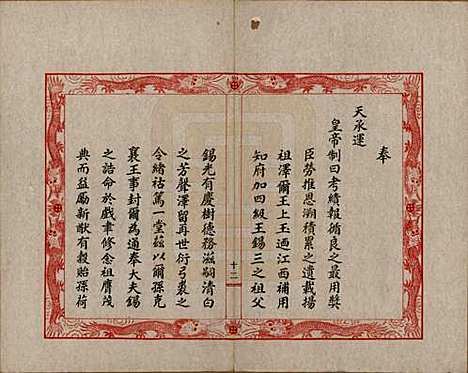 奉
天承運
皇帝制曰考績報循良之最用獎
臣勞推恩溯積累之遺載揚
祖澤爾王上玉迺江西補用
知府加四級王錫三之祖父
十二
錫光有慶樹德務滋嗣清白
之芳聲澤留再世衍弓裘之
令緒祜篤一堂茲以爾孫克
襄王事封爾為通奉大夫錫
之誥命於戲聿修念祖膺茂
典而益勵新猷有穀貽孫荷